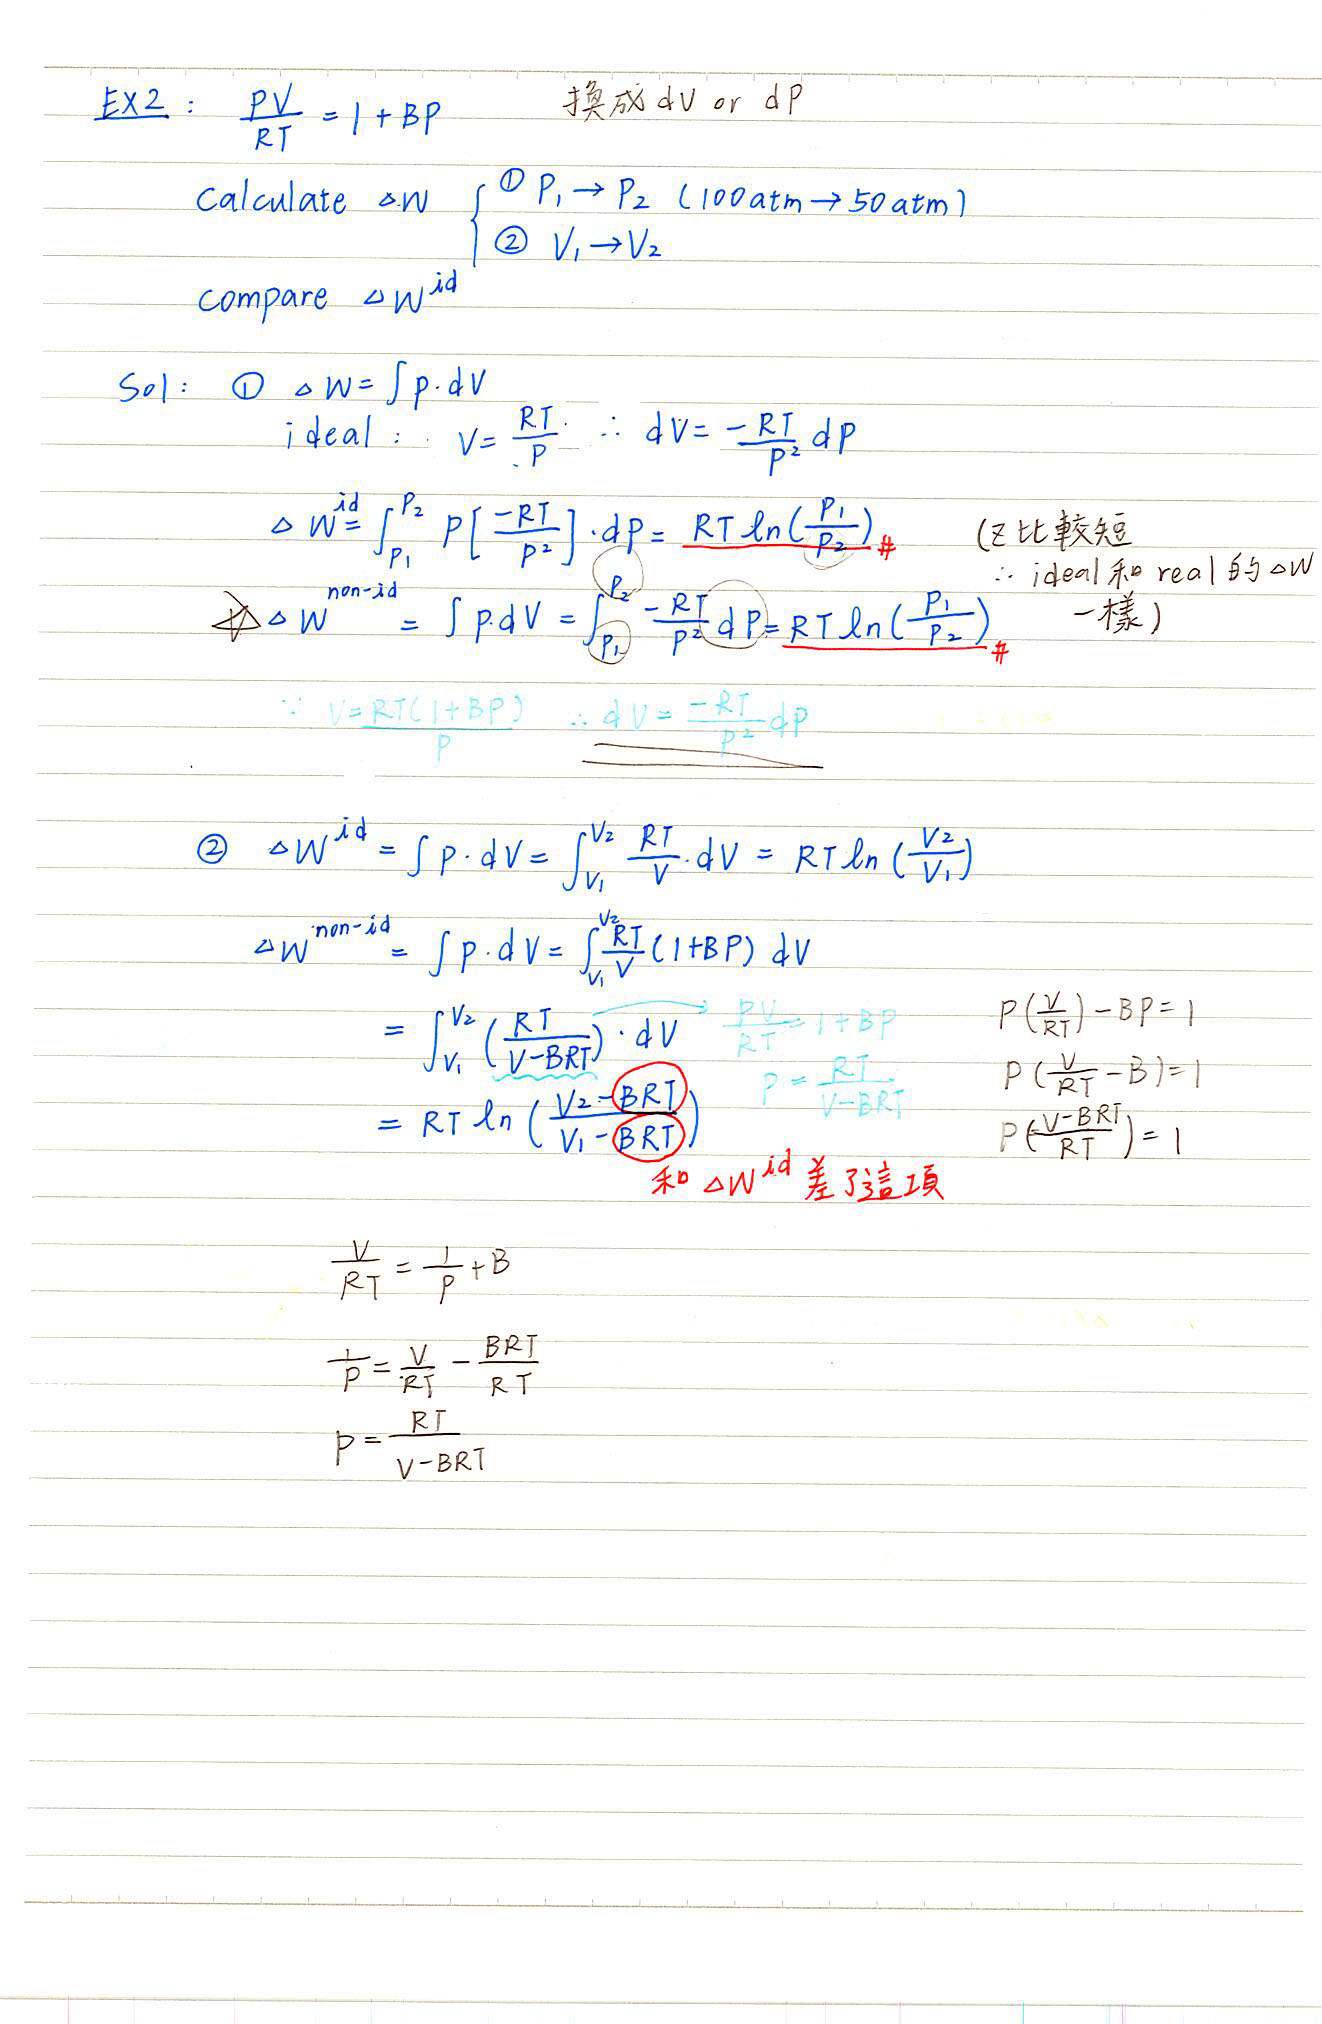 EX2: PV/RT = 1 + BP 換成 dV or dP
Calculate △W { ① P₁ → P₂ (100atm → 50atm)
② V₁ → V₂
compare △W^id
Sol: ① △W = ∫p·dV
ideal: V = RT/P ∴ dV = -RT/P² dP
△W^id = ∫_{P₁}^{P₂} P[-RT/P²]·dP = RT ln(P₁/P₂)# (Z比較短
∴ ideal和real的△W
一樣)
△W^non-id = ∫p.dV = ∫_{P₁}^{P₂} -RT/P² dP = RT ln(P₁/P₂)#
∵ V = RT(1+BP)/P ∴ dV = -RT/P² dP
② △W^id = ∫p·dV = ∫_{V₁}^{V₂} RT/V·dV = RT ln(V₂/V₁)
△W^non-id = ∫p·dV = ∫_{V₁}^{V₂} RT/V (1+BP) dV
= ∫_{V₁}^{V₂} (RT/V-BRT)·dV → PV/RT = 1+BP
P = RT/V-BRT
= RT ln(V₂-BRT/V₁-BRT)
和△W^id差了這項
P(V/RT) - BP = 1
P(V/RT - B) = 1
P(V-BRT/RT) = 1
V/RT = 1/P + B
1/P = V/RT - BRT/RT
P = RT/V-BRT